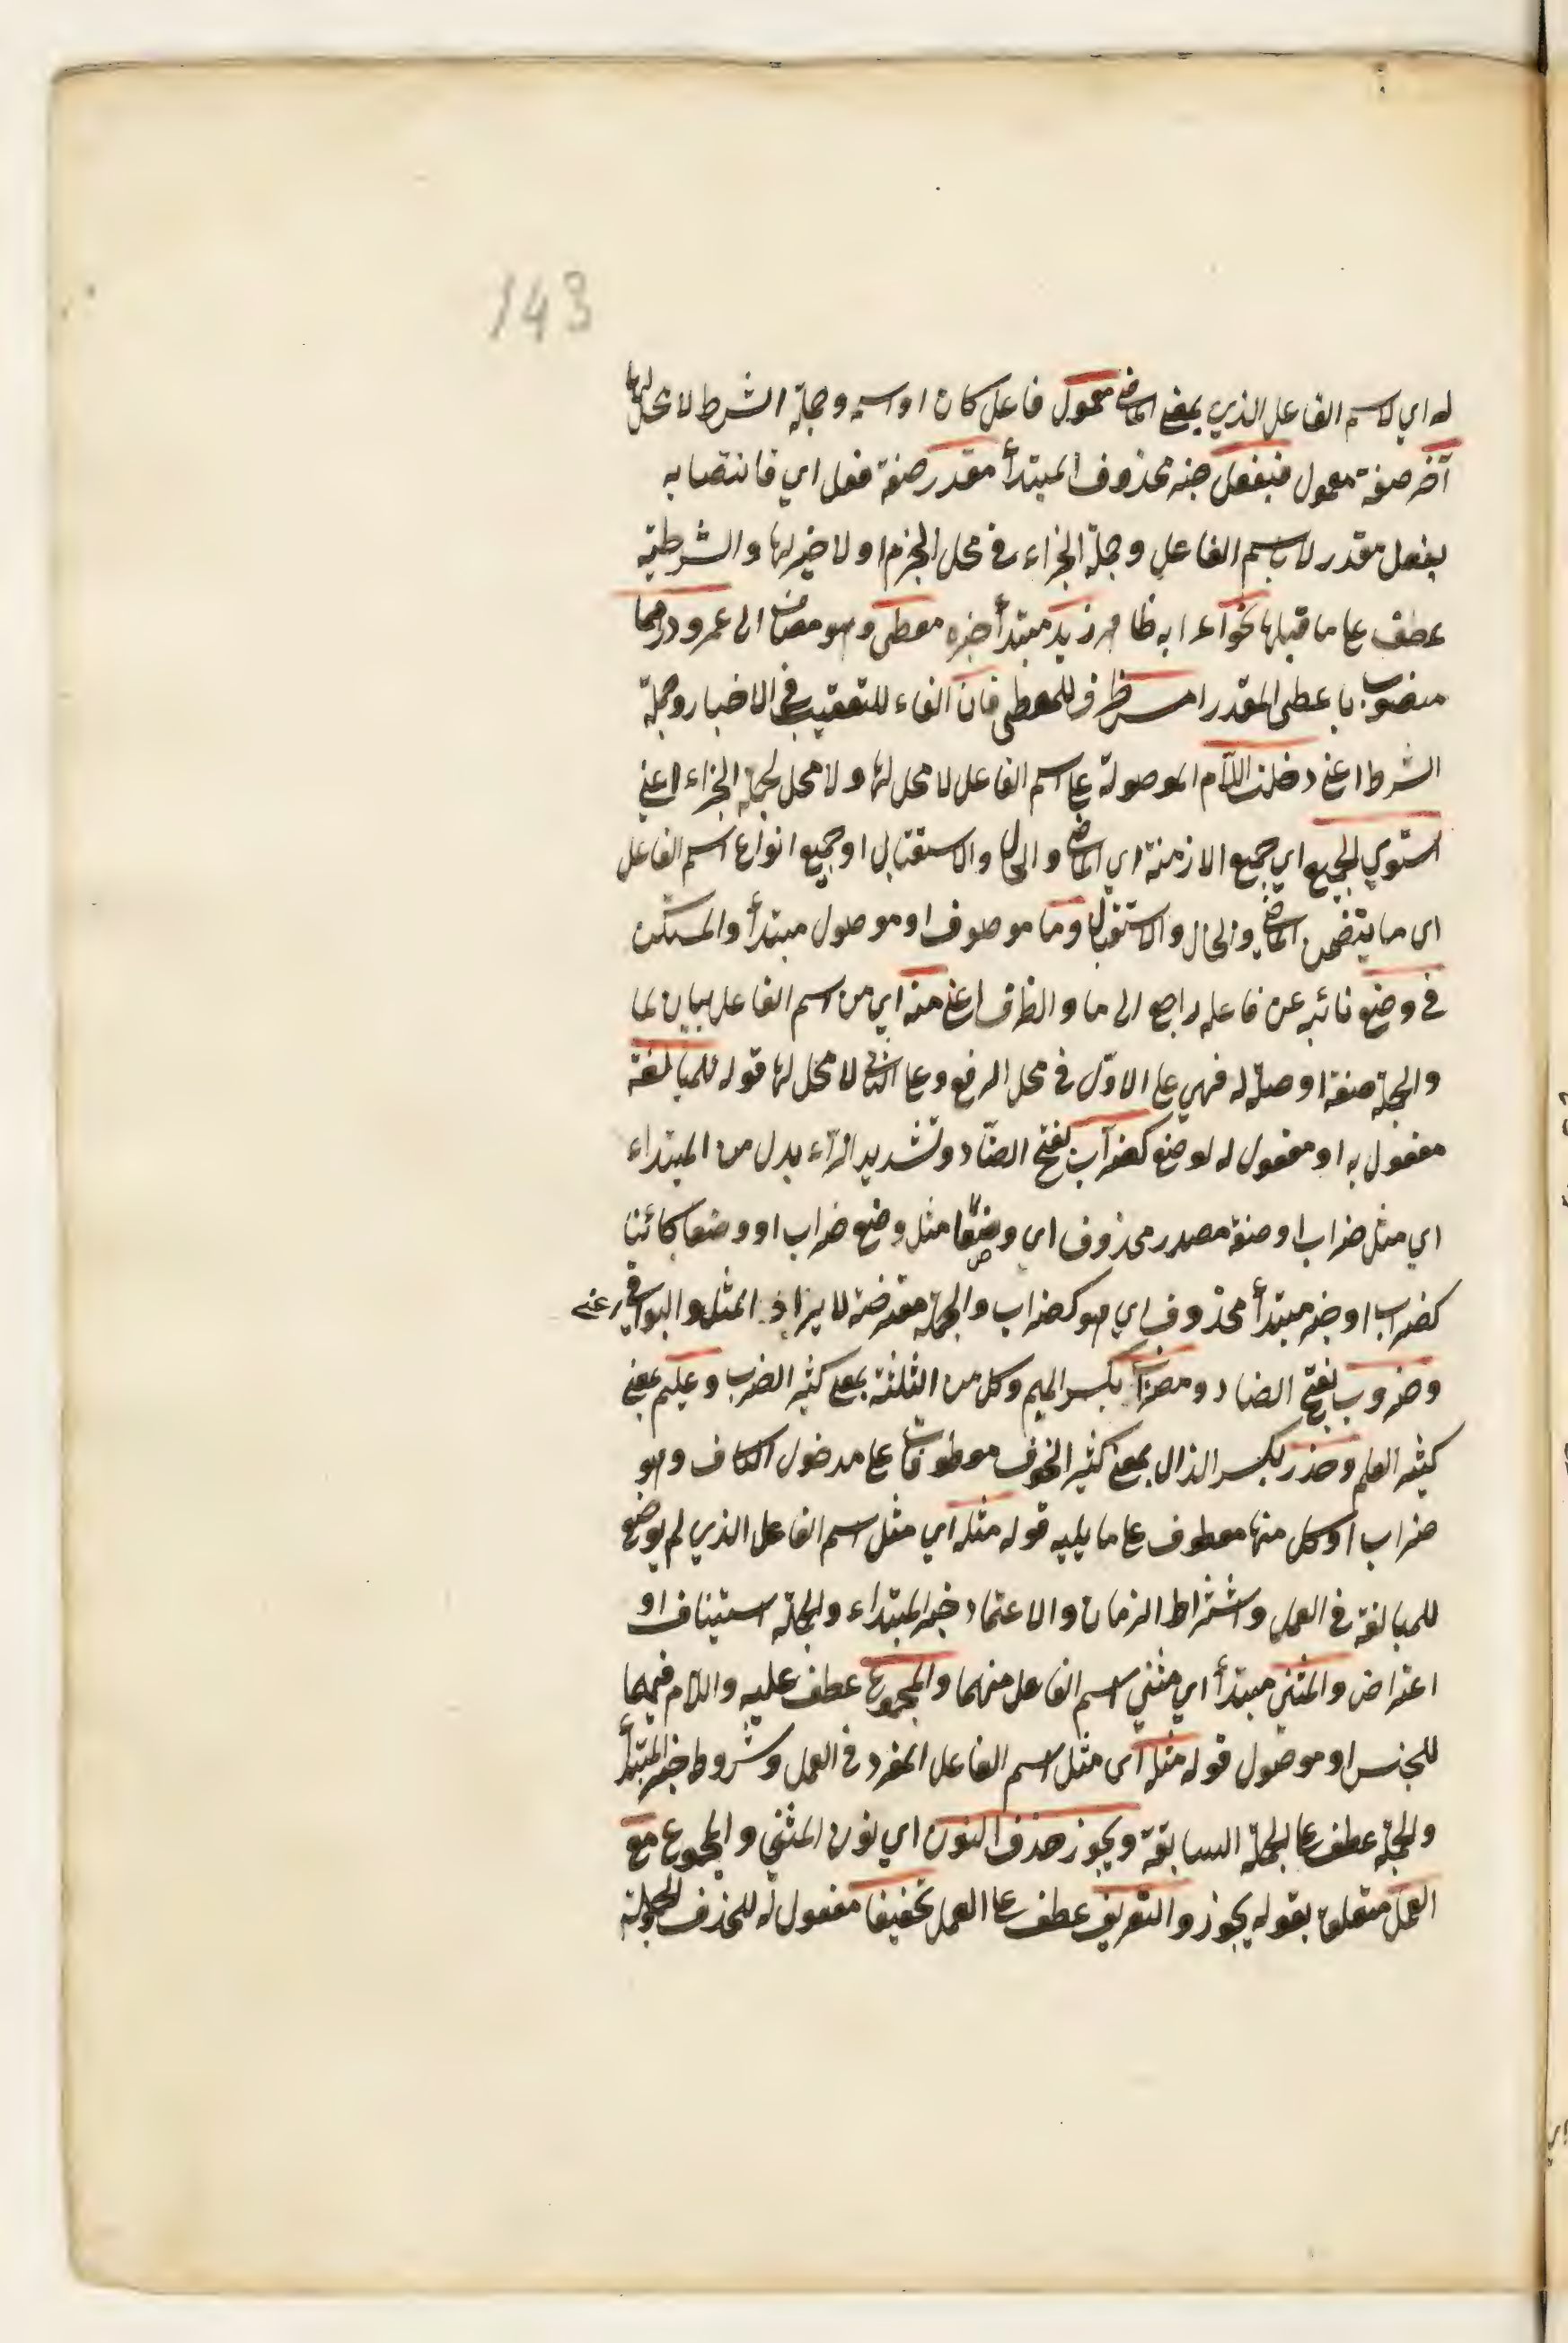 143
له اي لاسم الفاعل الذي بمعنى الماضي معمول فاعل كان او اسمه وجملة الشرط لا محل لها
آخر صفة معمول فبفعل خبر محذوف المبتدأ مقدر صفة فعل اي فانتصابه
بفعل مقدر لا باسم الفاعل وجملة الجزاء في محل الجزم او لا خبر لها والشرطية
عطف على ما قبلها نحو اعرابه ظاهر زيد مبتدأ خبره معطى وهو مضاف الى عمرو درهما
منصوب باعطى المقدر امس ظرف للمعطى فان الفاء للتعقيب في الاخبار وجملة
الشرط اعني دخلت اللام الموصولة على اسم الفاعل لا محل لها ولا محل لجملة الجزاء اعني
استوي الجميع اي جميع الازمنة اي الماضي والحال والاستقبال او جميع انواع اسم الفاعل
اي ما يتضمن الماضي والحال والاستقبال وما موصوف او موصول مبتدأ والمستكن
في وضع نائبه عن فاعله راجع الى ما والظرف اعني منه اي من اسم الفاعل بيان لما
والجملة صفة او صلة له فهي على الاول في محل الرفع وعلى الثاني لا محل لها قوله للمبالغة
مفعول به او مفعول له لوضع كضرّاب بفتح الضّاد وتشديد الرّاء بدل من المبتداء
اي مثل ضراب او صفة مصدر محذوف اي وضعا مثل وضع ضراب او وضعا كائنا
كضراب او خبر مبتدأ محذوف اي هو كضراب والجملة معترضة لا يراد المثل والبواقي
وضروب بفتح الضاد ومضراب بكسر الميم وكل من الثلثة بمعنى كثير الضرب وعليم بمعنى
كثير العلم وحذر بكسر الذال بمعنى كثير الخوف معطوفات على مدخول الكاف وهو
ضراب او كل منها معطوف على ما يليه قوله مثله اي مثل اسم الفاعل الذي لم يوضع
للمبالغة في العمل واشتراط الزمان والاعتماد خبر المبتداء والجملة استيناف او
اعتراض والمثنى مبتدأ اي مثني اسم الفاعل منهما والمجموع عطف عليه واللام فيهما
للجنس او موصول قوله مثله اي مثل اسم الفاعل المفرد في العمل وشروط خبر المبتدأ
والجملة عطف على الجملة السابقة ويجوز حذف النون اي نون المثني والمجموع مع
العمل متعلق بقوله يجوز والتعريف عطف على العمل تخفيفا مفعول له للحذف والجملة